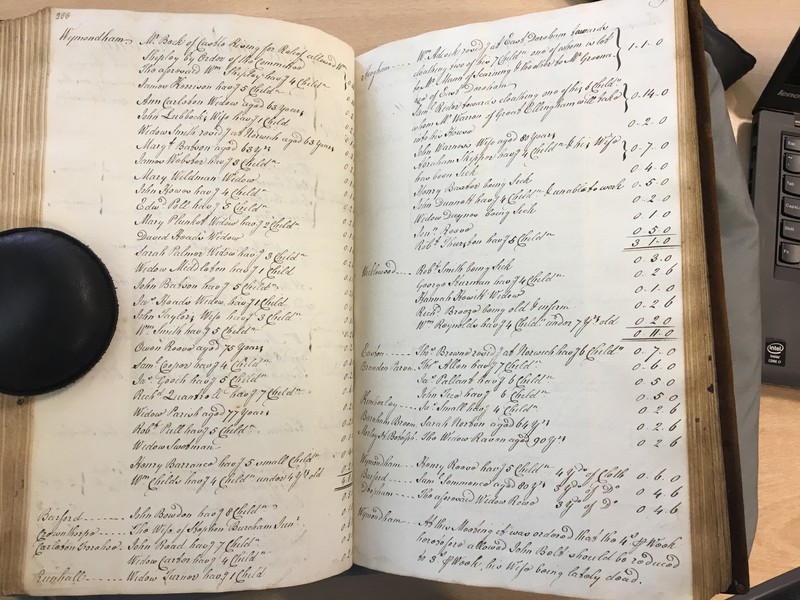 286
Wymondham Mr Beck of Castle Rising for Relief allowed Wm
Shipley by Order of the Committee
The aforesaid Wm Shipley havg 4 Childn
James Harrison havg 5 Childn
Ann Carleton Widow aged 63 years
John Lubbock's Wife havg 1 Child
Widow Smith residg at Norwich aged 63 years
Margt Batson aged 63 yrs
James Webster havg 5 Childn
Mary Weldman Widow
John Howes havg 4 Childn
Edwd Poll havg 5 Childn
Mary Plunket Widow havg 2 Childn
David Roads Widow
Sarah Palmer Widow havg 3 Childn
Widow Middleton havg 1 Child
John Batson havg 5 Childn
Jas Roads Widow havg 1 Child
John Taylor's Wife havg 3 Childn
Wm Smith havg 5 Childn
Owen Reeve aged 75 years
Saml Cooper havg 4 Childn
Jas Gooch havg 5 Childn
Richd havg 7 Childn
Widow Parish aged 77 years
Robt Pull havg 5 Childn
Widow Sweetman
Henry Barrance havg 5 small Childn
Wm Childs havg 4 Childn under 4 yrs old
Barford John Bowden havg 8 Childn
Crownthorpe The Wife of Stephen Burcham Junr
Carleton Forehoe John Road havg 7 Childn
Widow Carter havg 4 Childn
Runhall Widow Turner havg 1 Child
Hingham Wm Adcock residg at East Dereham towards
cloathing two of his 7 Childn one of whom is let
to Mr Mann of Scarning & the other to Mr Greene
of East Dereham 1.1.0
Saml towards cloathing one of his 6 Childn
whom Mr Warren of Great Ellingham will take
into his House 0.14.0
John Warnes Wife aged 80 years 0.2.0
Abraham Skipper havg 4 Childn & his Wife
has been Sick 0.7.0
Henry Baxter being Sick 0.4.0
John Dunnett havg 4 Childn & unable to work 0.5.0
Widow being Sick 0.2.0
Jonn Reeve 0.1.0
Robt Thurston havg 5 Childn 0.5.0
3.1.0
Welborne Robt Smith being Sick 0.3.0
George Harman havg 4 Childn 0.2.6
Hannah Howitt Widow 0.1.0
Richd Breeze being old & infirm 0.2.6
Wm Reynolds havg 4 Childn under 7 yrs old 0.2.0
0.11.0
Easton Thos Browne residg at Norwich havg 6 Childn 0.7.0
Brandon Parva Thos Allen havg 7 Childn 0.6.0
Jas Pallant havg 6 Childn 0.5.0
John havg 6 Childn 0.5.0
Kimberley Jas Small havg 4 Childn 0.2.6
Barnham Broom Sarah Norton aged 64 yrs 0.2.6
The Widow Raven aged 90 yrs 0.2.6
Wymondham Henry Reeve havg 5 Childn 4 yds of Cloth 0.6.0
Barford Saml aged 80 yrs 3 yds of Do 0.4.6
Deopham The aforesaid Widow Rowe 3 yds of Do 0.4.6
Wymondham At this Meeting it was ordered that the 4s P Week
heretofore allowed John Bolt should be reduced
to 3s P Week, his Wife being lately dead.
lenovo
Esc
Tab
Caps
Fn
intel